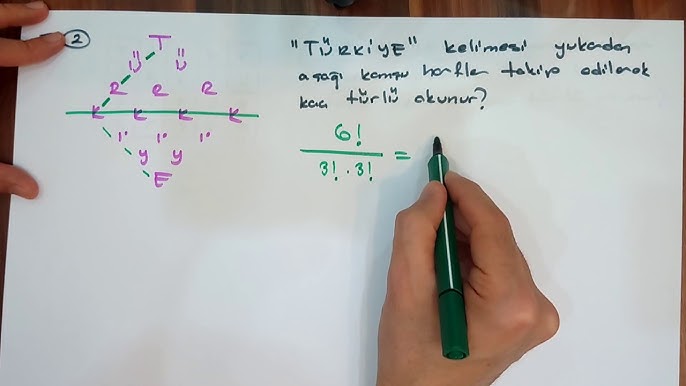 2
T
Ü Ü
R R R
K K K K
İ İ İ
Y Y
E
"TÜRKİYE" kelimesi yukarıdan
aşağı komşu harfler takip edilerek
kaç türlü okunur?
6!
3! . 3! =